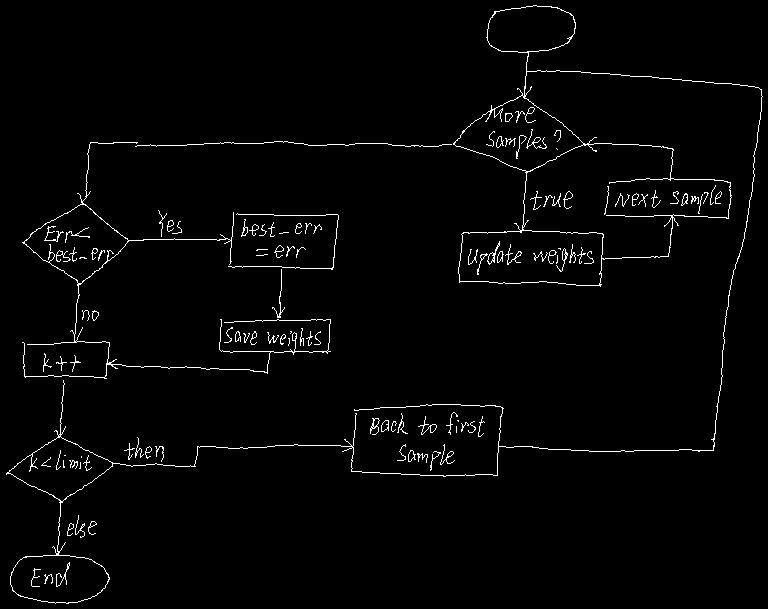 More
samples?
true
Next sample
update weights
Err<
best_err
Yes
best_err
= err
no
save weights
k++
k<limit
then
Back to first
sample
else
End